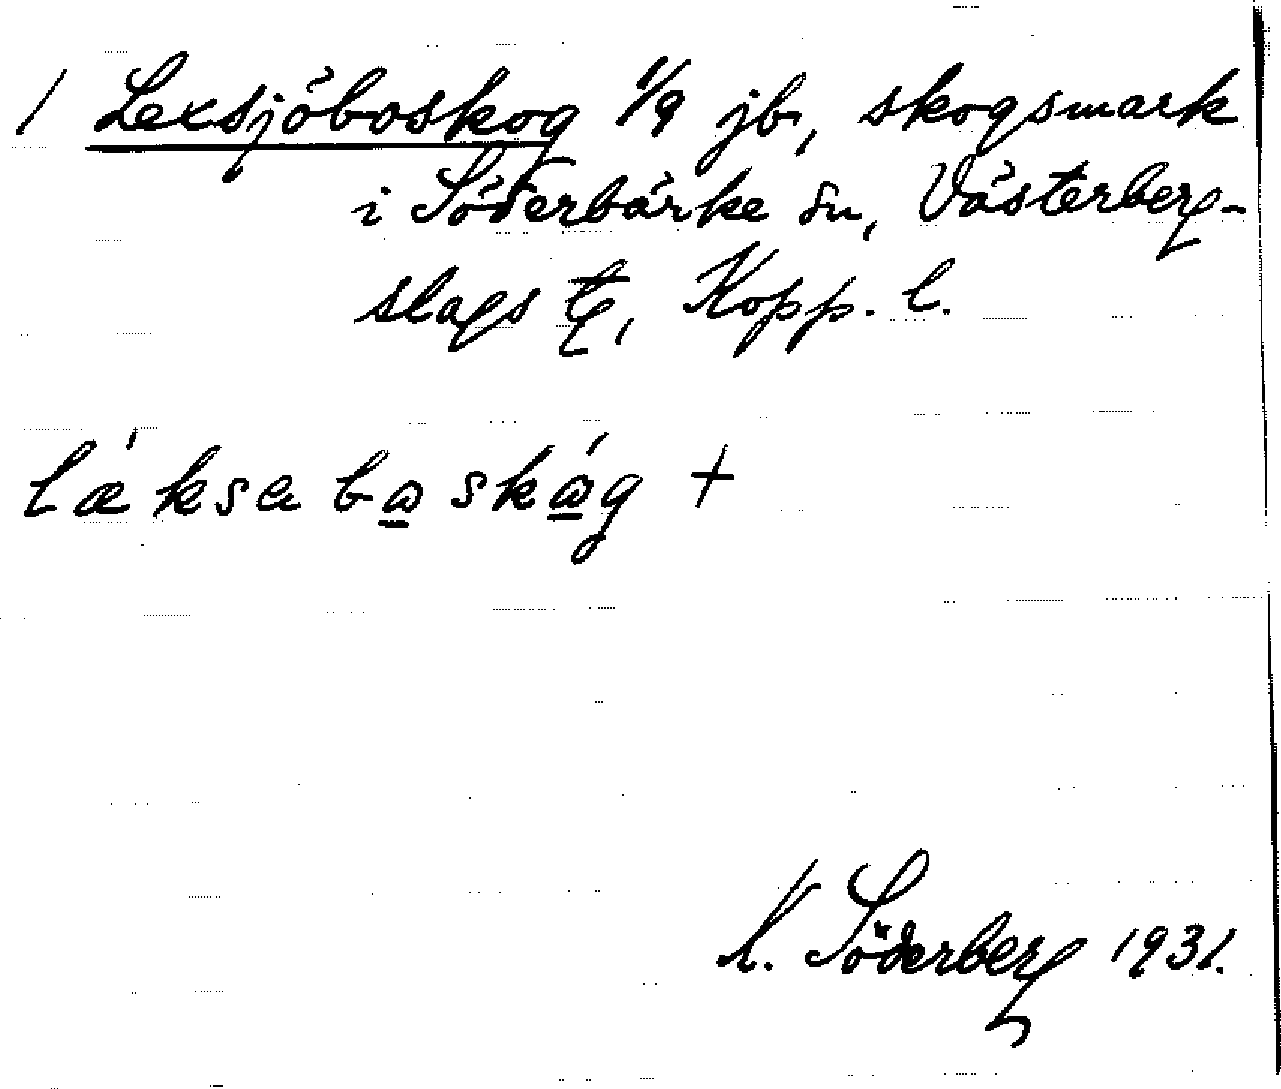 / Lexsjöboskog 1/9 jb, skogsmark
i Söderbärke sn, Västerberg-
slags tg, Kopp. l.
lǽksabo̲skǻ̲g +
Söderberg 1931.